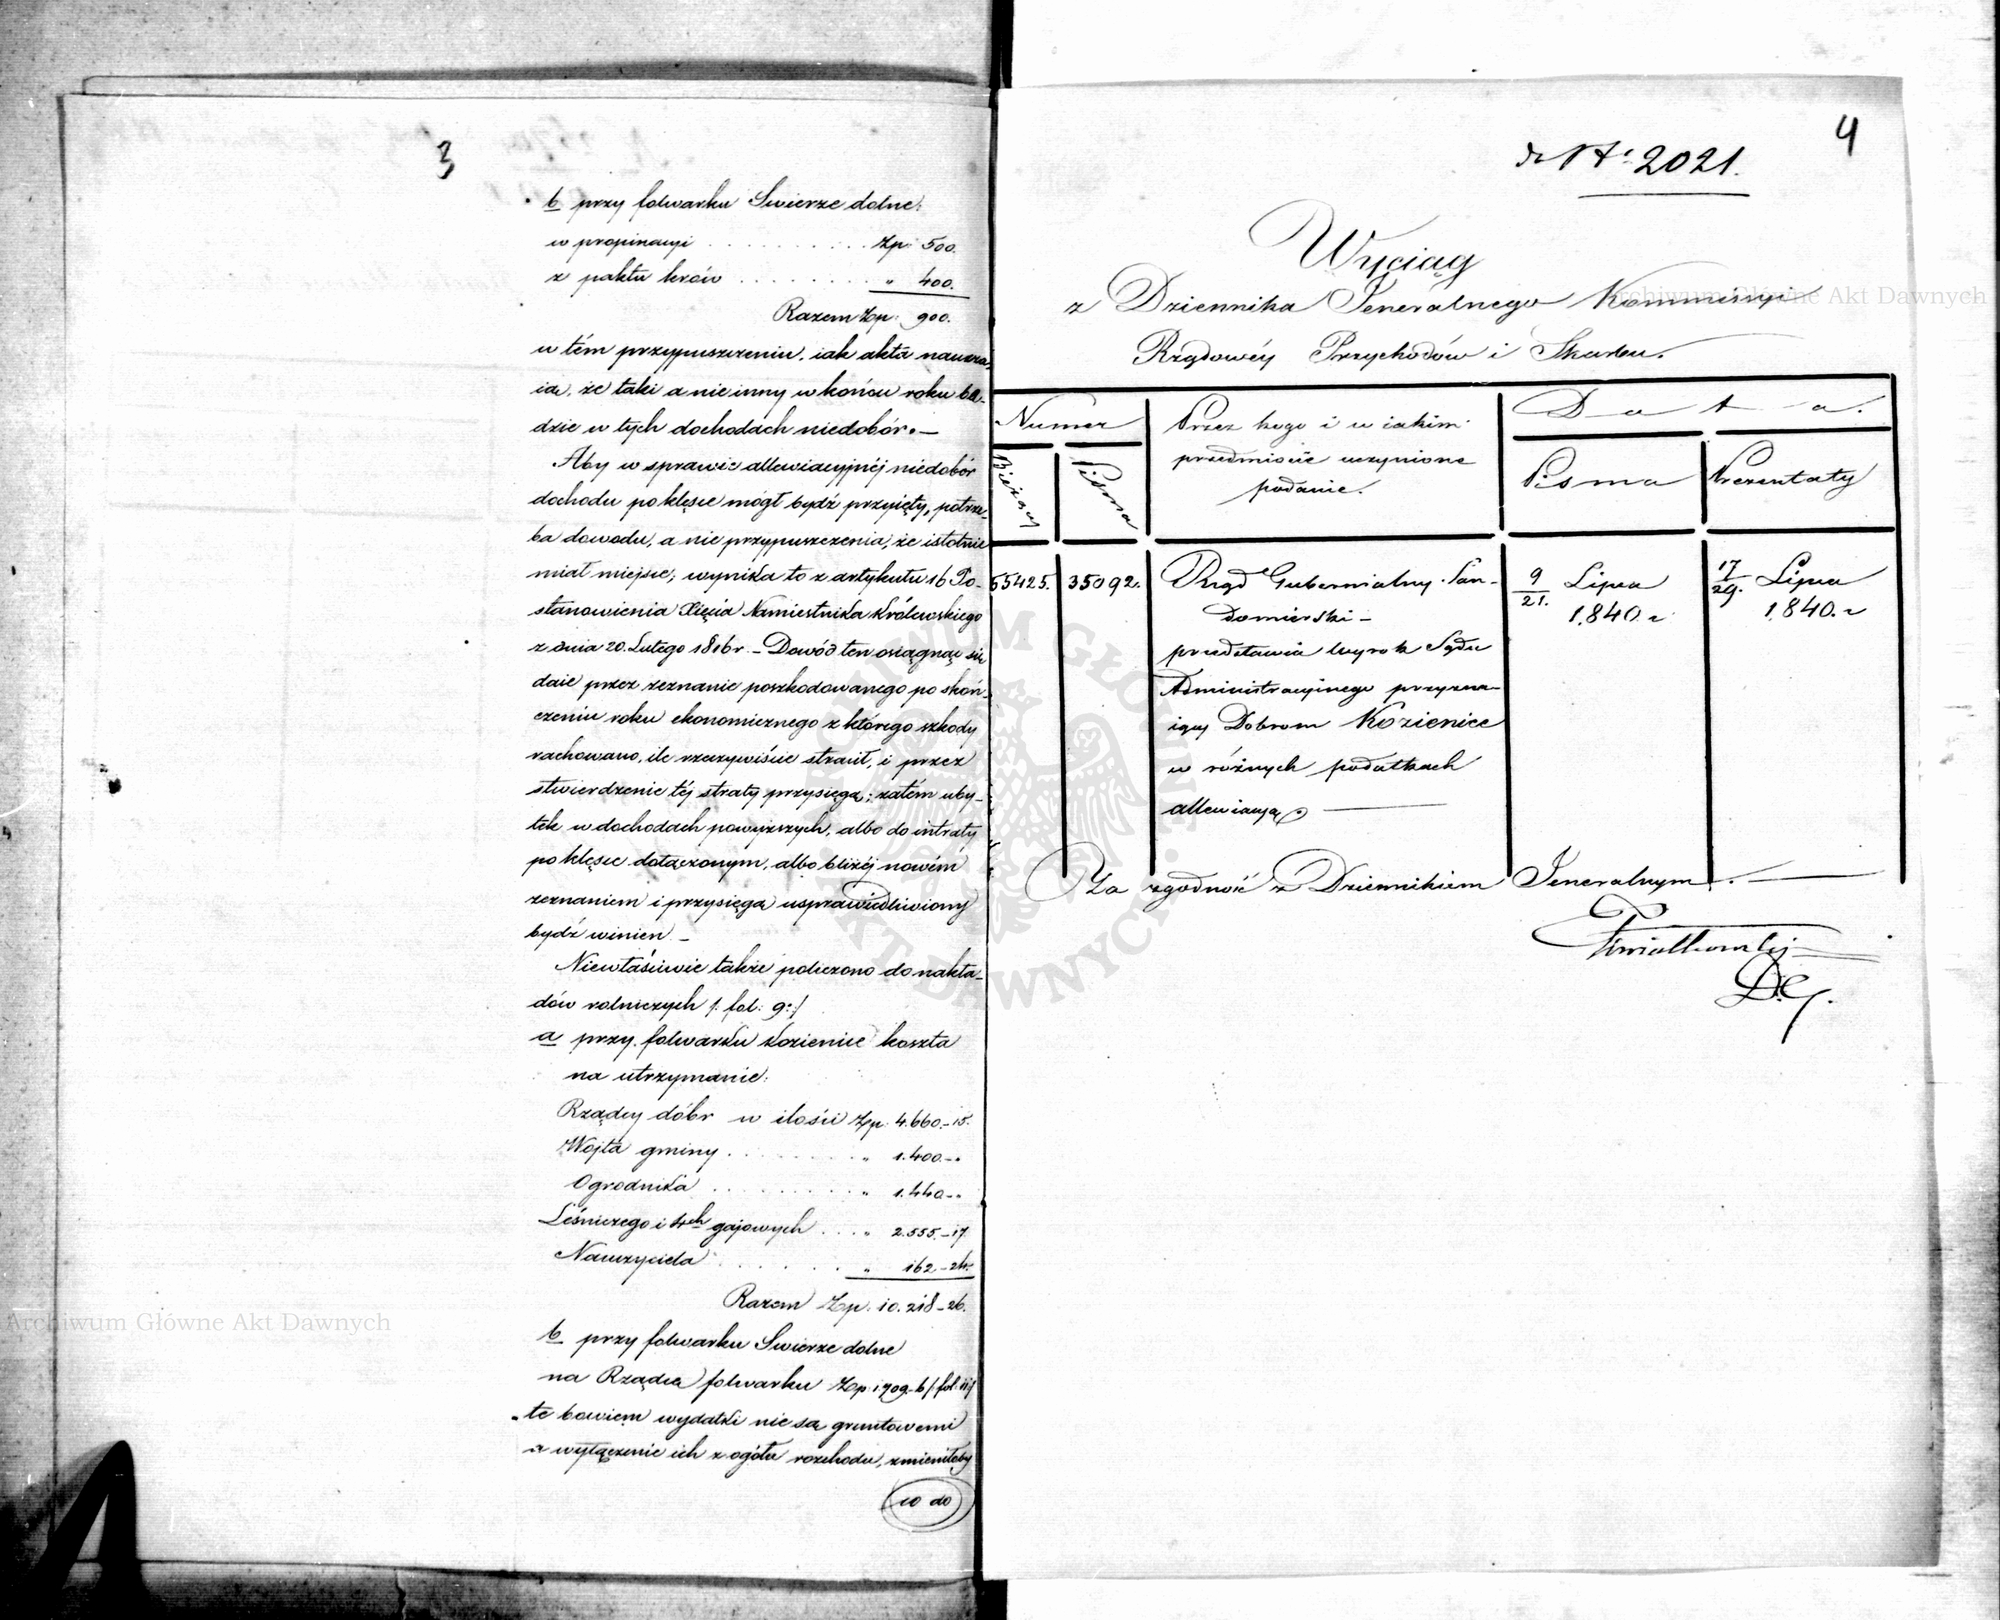 3
b przy folwarku Swierze dolne:
w propinacyi . . . . . . . . . . Zp: 500.
z paktu krów . . . . . . . . „ 400.
Razem Zp: 900.
w tém przypuszczeniu, iak akta naucza,
ią, że taki a nie inny w końcu roku bę-
dzie w tych dochodach niedobór. —
Aby w sprawie allewiacyjnéj niedobór
dochodu po klęsce mógł bydź przyięty, potrze-
ba dowodu, a nie przypuszczenia, że istotnie
miał miejsce; wynika to z artykułu 16 Po-
stanowienia Xięcia Namiestnika Królewskiego
z dnia 20. Lutego 1816 r. — Dowód ten osiągnąć się
daie przez zeznanie poszkodowanego po skoń-
czeniu roku ekonomicznego z którego szkody
rachowano, ile rzeczywiście stracił, i przez
stwierdzenie téj straty przysięgą; zatém uby-
tek w dochodach powyższych, albo do intraty
po klęsce dołączonym, albo bliżéj nowém
zeznaniem i przysięgą usprawiedliwiony
bydź winien —
Niewłaściwie także policzono do nakła-
dów rolniczych /: fol: 9 :/
a przy folwarku Kozienice koszta
na utrzymanie:
Rządcy dóbr w ilości Zp: 4.660.–15.
Wojta gminy . . . . . . . „ 1.400.–„
Ogrodnika . . . . . . . . „ 1.440–„
Leśniczego i 4ch gajowych . . . „ 2.555.–17.
Nauczyciela . . . . . . „ 162–24.
Razem Zp: 10.218–26.
b przy folwarku Swierze dolne
na Rządcę folwarku Zp: 1909–6 /: fol: 11 :/
te bowiem wydatki nie są gruntowemi
a wyłączenie ich z ogółu rozchodu, zmieniłoby
co do
4
do N: 2021.
Wyciąg
z Dziennika Jeneralnego Kommissyi
Rządowéy Przychodów i Skarbu.
Numer
Bieżący
Pisma
Przez kogo i w iakim
przedmiocie uczynione
podanie.
Data.
Pisma
Prezentaty
55425.
35092.
Rząd Gubernialny San-
domierski –
przedstawia wyrok Sądu
Administracyinego przyzna-
iący Dobrom Kozienice
w różnych podatkach
allewiacyą
9/21. Lipca
1,840. r
17/29. Lipca
1,840. r
Za zgodność z Dziennikiem Jeneralnym.
Kwiatkowski
D.G.
Archiwum Główne Akt Dawnych
Archiwum Główne Akt Dawnych